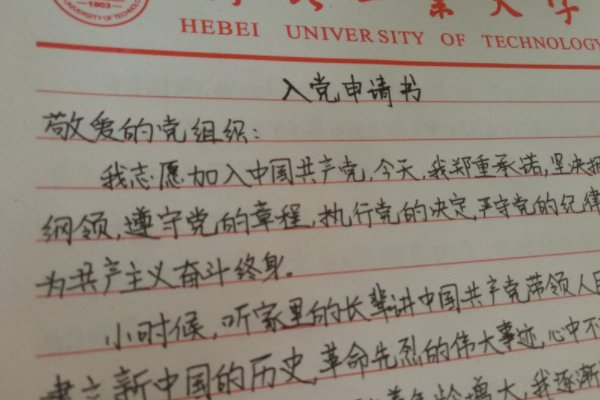 1903
UNIVERSITY OF TECHNOLOGY
业大学
HEBEI UNIVERSITY OF TECHNOLOGY
入党申请书
敬爱的党组织:
我志愿加入中国共产党,今天,我郑重承诺,坚决
纲领,遵守党的章程,执行党的决定,严守党的纪律
为共产主义奋斗终身。
小时候,听家里的长辈讲中国共产党带领人民
建立新中国的历史,革命先烈的伟大事迹,心中不
年龄增大,我逐渐